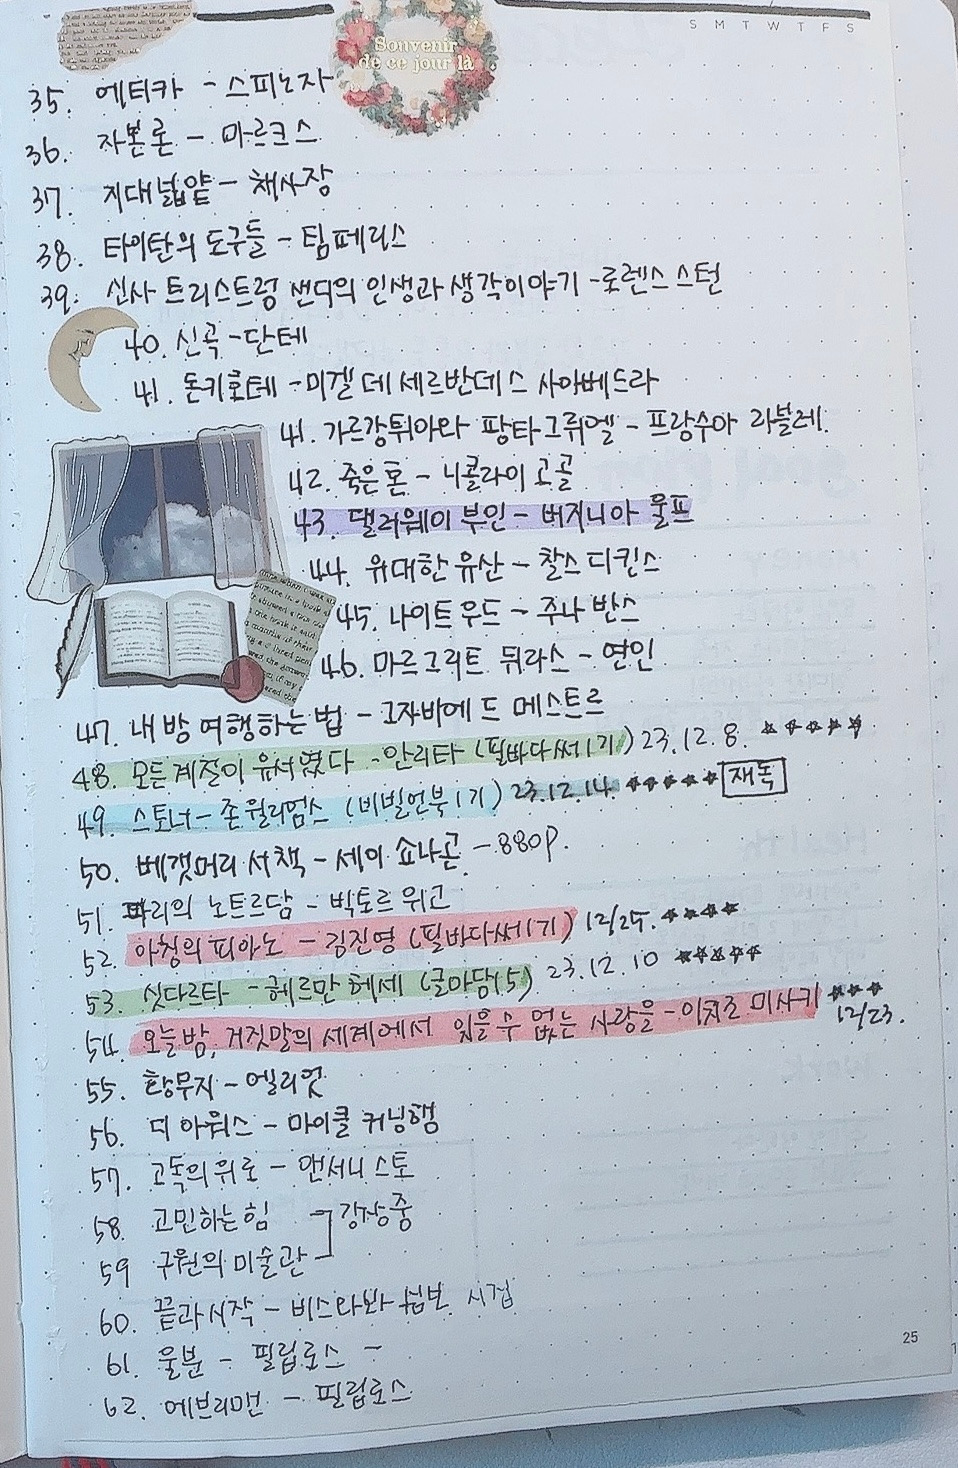 S M T W T F S
Souvenir
de ce jour là
35. 에티카 - 스피노자
36. 자본론 - 마르크스
37. 지대넓얕 - 채사장
38. 타이탄의 도구들 - 팀페리스
39. 신사 트리스트럼 샌디의 인생과 생각이야기 - 로렌스 스턴
40. 신곡 - 단테
41. 돈키호테 - 미겔 데 세르반데스 사아베드라
41. 가르강튀아와 팡타그뤼엘 - 프랑수아 라블레.
42. 죽은혼 - 니콜라이 고골
43. 댈러웨이 부인 - 버지니아 울프
44. 위대한 유산 - 찰스 디킨스
45. 나이트우드 - 주나 반스
46. 마르그리트 뒤라스 - 연인
47. 내 방 여행하는 법 - 그자비에 드 메스트르
48. 모든 계절이 유서였다 - 안리타 (필바다써1기) 23.12.8. ★★★★★
49. 스토너 - 존 윌리엄스 (비빌언북1기) 23.12.14. ★★★★★ 재독
50. 베갯머리 서책 - 세이 쇼나곤 - 880p.
51. 파리의 노트르담 - 빅토르 위고
52. 아침의 피아노 - 김진영 (필바다써1기) 12/25. ★★★★
53. 싯다르타 - 헤르만 헤세 (글마당5) 23.12.10 ★★★★★
54. 오늘밤, 거짓말의 세계에서 잊을 수 없는 사랑을 - 이치조 미사키 ★★★
12/23.
55. 황무지 - 엘리엇
56. 디 아워스 - 마이클 커닝햄
57. 고독의 위로 - 앤서니 스토
58. 고민하는 힘 강상중
59 구원의 미술관
60. 끝과 시작 - 비스와봐 쉼보 시집
61. 울분 - 필립로스 -
62. 에브리맨 - 필립로스
25